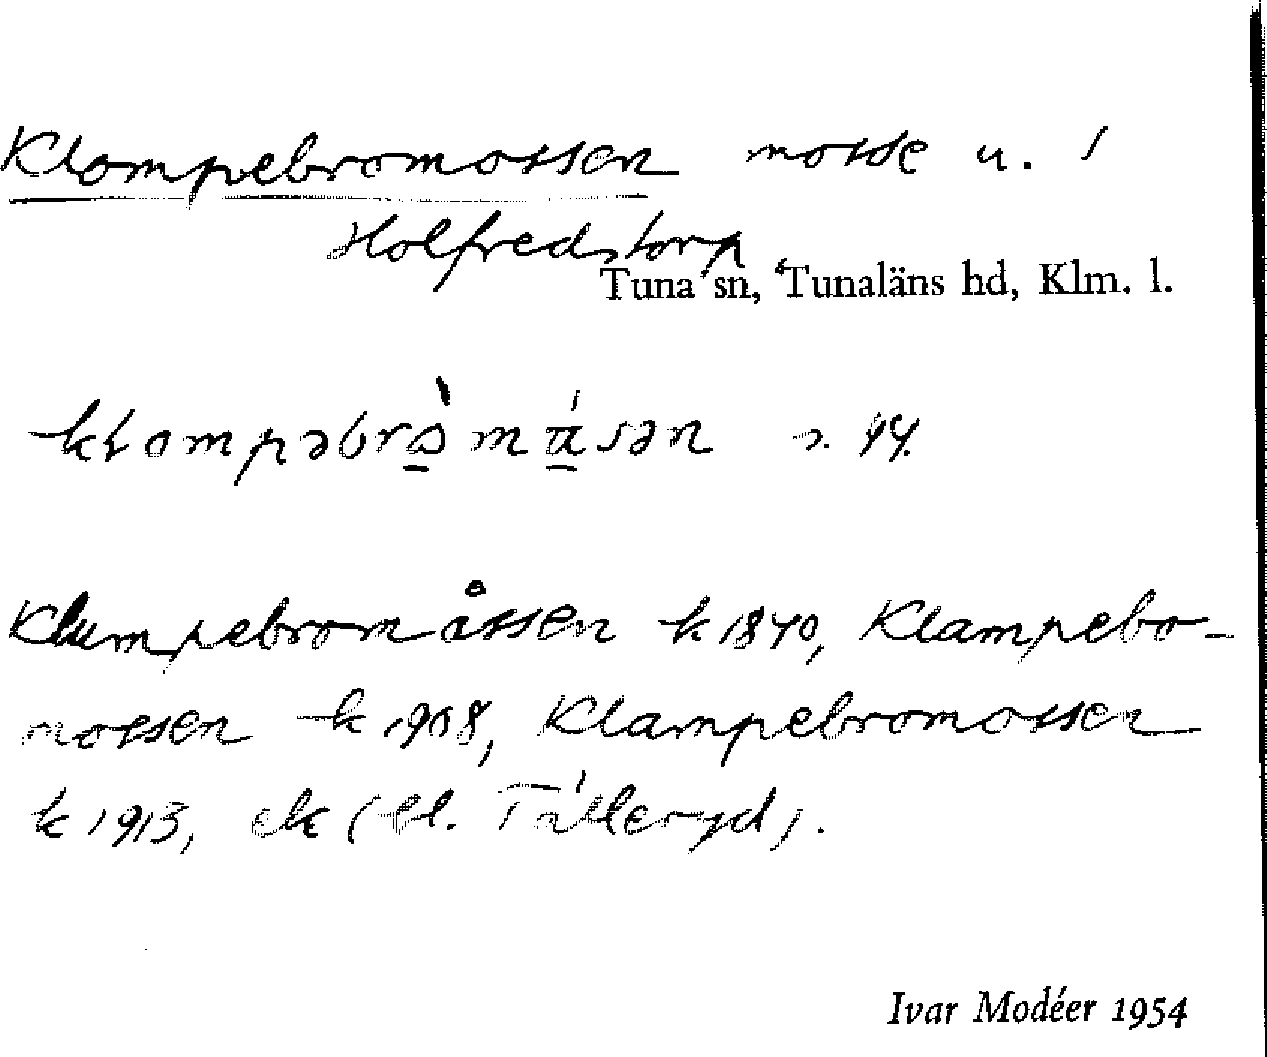 Klompebromossen mosse u. /
Holfredstorp
Tuna sn, Tunaläns hd, Klm. l.
klompəbrɔ̀másən 14.
Klumpebromåssen k 1840, Klampebo-
mossen k 1908, Klampebromossen
k 1913, ek (bl. Tålleryd).
Ivar Modéer 1954